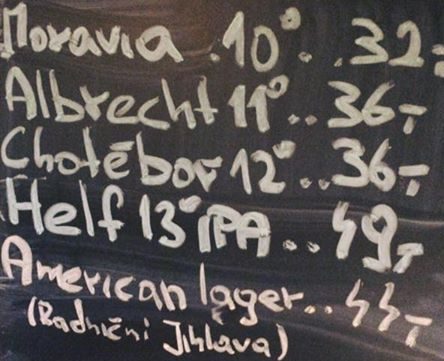 Moravia .10°..32,-
Albrecht 11°..36,-
Chotěboř 12°..36,-
Helf 13° IPA..49,-
American lager..44,-
(Radniční Jihlava)